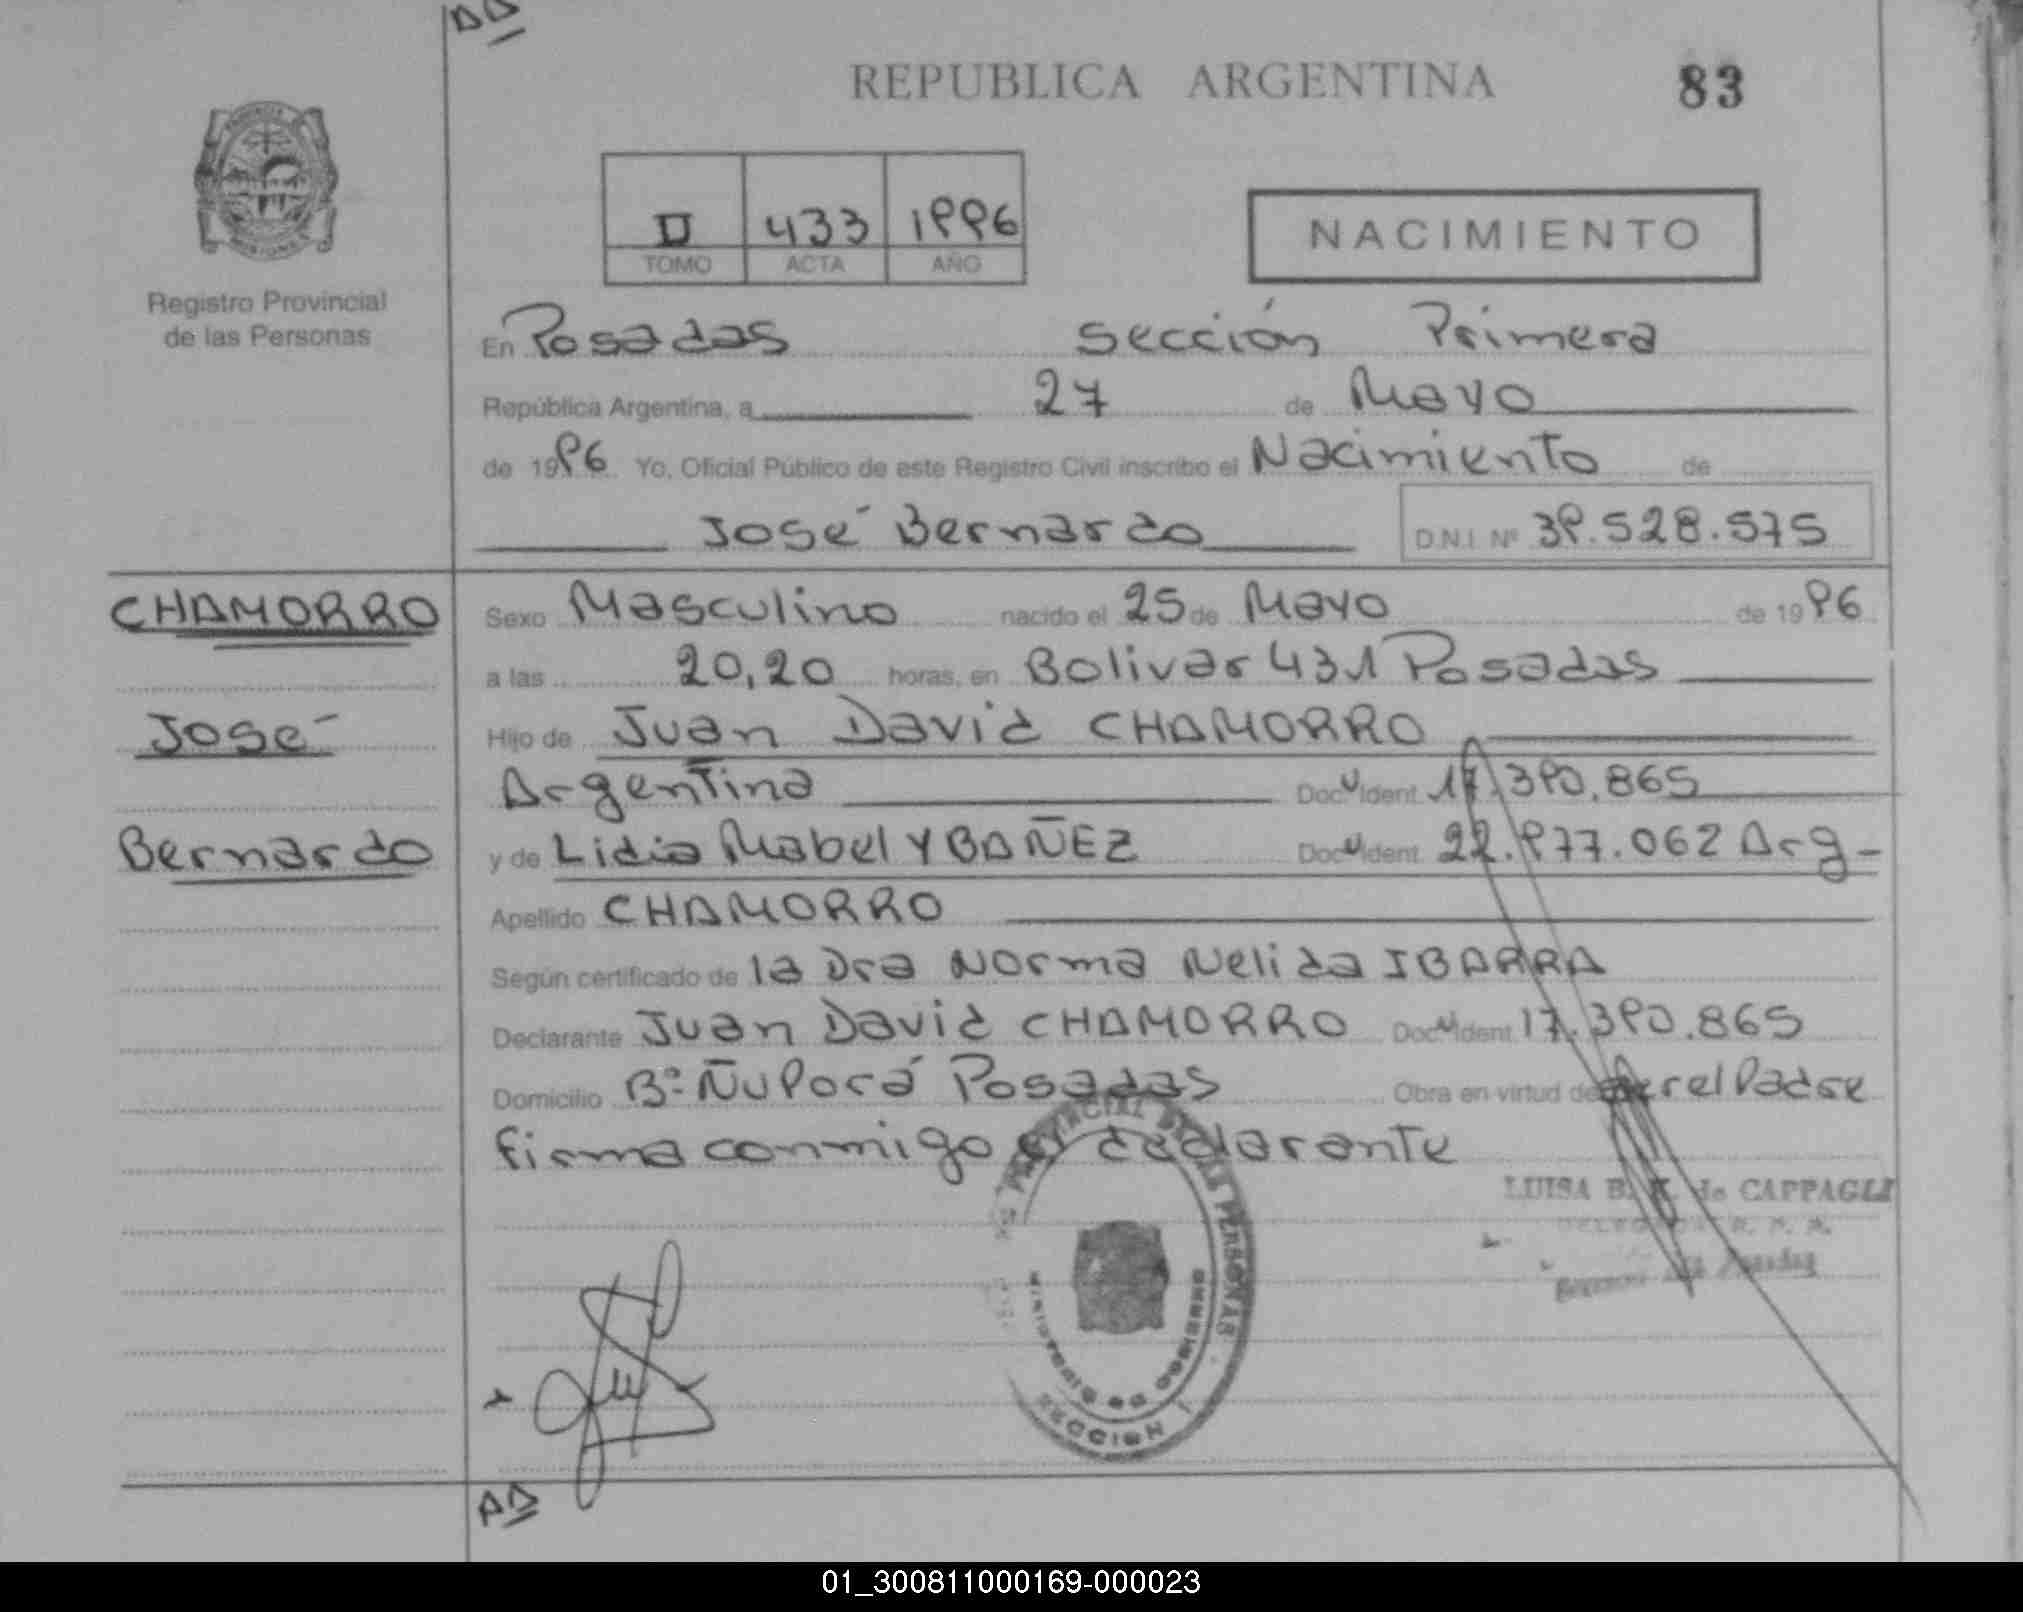 AD
REPUBLICA ARGENTINA 83
II 433 1996
TOMO ACTA AÑO
NACIMIENTO
Registro Provincial
de las Personas
En Posadas Sección Primera
República Argentina, a 27 de Mayo
de 1996 Yo, Oficial Público de este Registro Civil inscribo el Nacimiento de
José Bernardo D.N.I. Nº 39.528.575
CHAMORRO
José
Bernardo
Sexo Masculino nacido el 25 de Mayo de 1996
a las 20,20 horas, en Bolivar 431 Posadas
Hijo de Juan David CHAMORRO
Argentina Doc. Ident. 17.390.865
y de Lidia Mabel YBAÑEZ Doc. Ident. 22.977.062 Arg-
Apellido CHAMORRO
Según certificado de la Dra Norma Nelida IBARRA
Declarante Juan David CHAMORRO Doc. Ident. 17.390.865
Domicilio Bº Ñu Porá Posadas Obra en virtud de ser el Padre
firma conmigo el declarante
LUISA B. de CAPPAGLI
PROVINCIAL DE LAS PERSONAS
MINISTERIO DE GOBIERNO
SECCION 1
AD
01_300811000169-000023